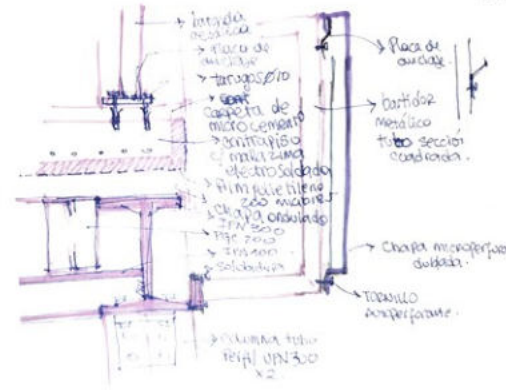 baranda
metálica
Placa de
anclaje
tarugos Ø10
Carpeta de
microcemento
contrapiso
c/ malla sima
electrosoldada
Film polietileno
200 micrones
Chapa ondulada
IPN 300
PGC 200
IPN 400
soldadura
columna tubo
Perfil UPN 300
x2.
Placa de
anclaje.
bastidor
metálico
tubo sección
cuadrada.
Chapa microperfora
doblada.
TORNILLO
autoperforante.